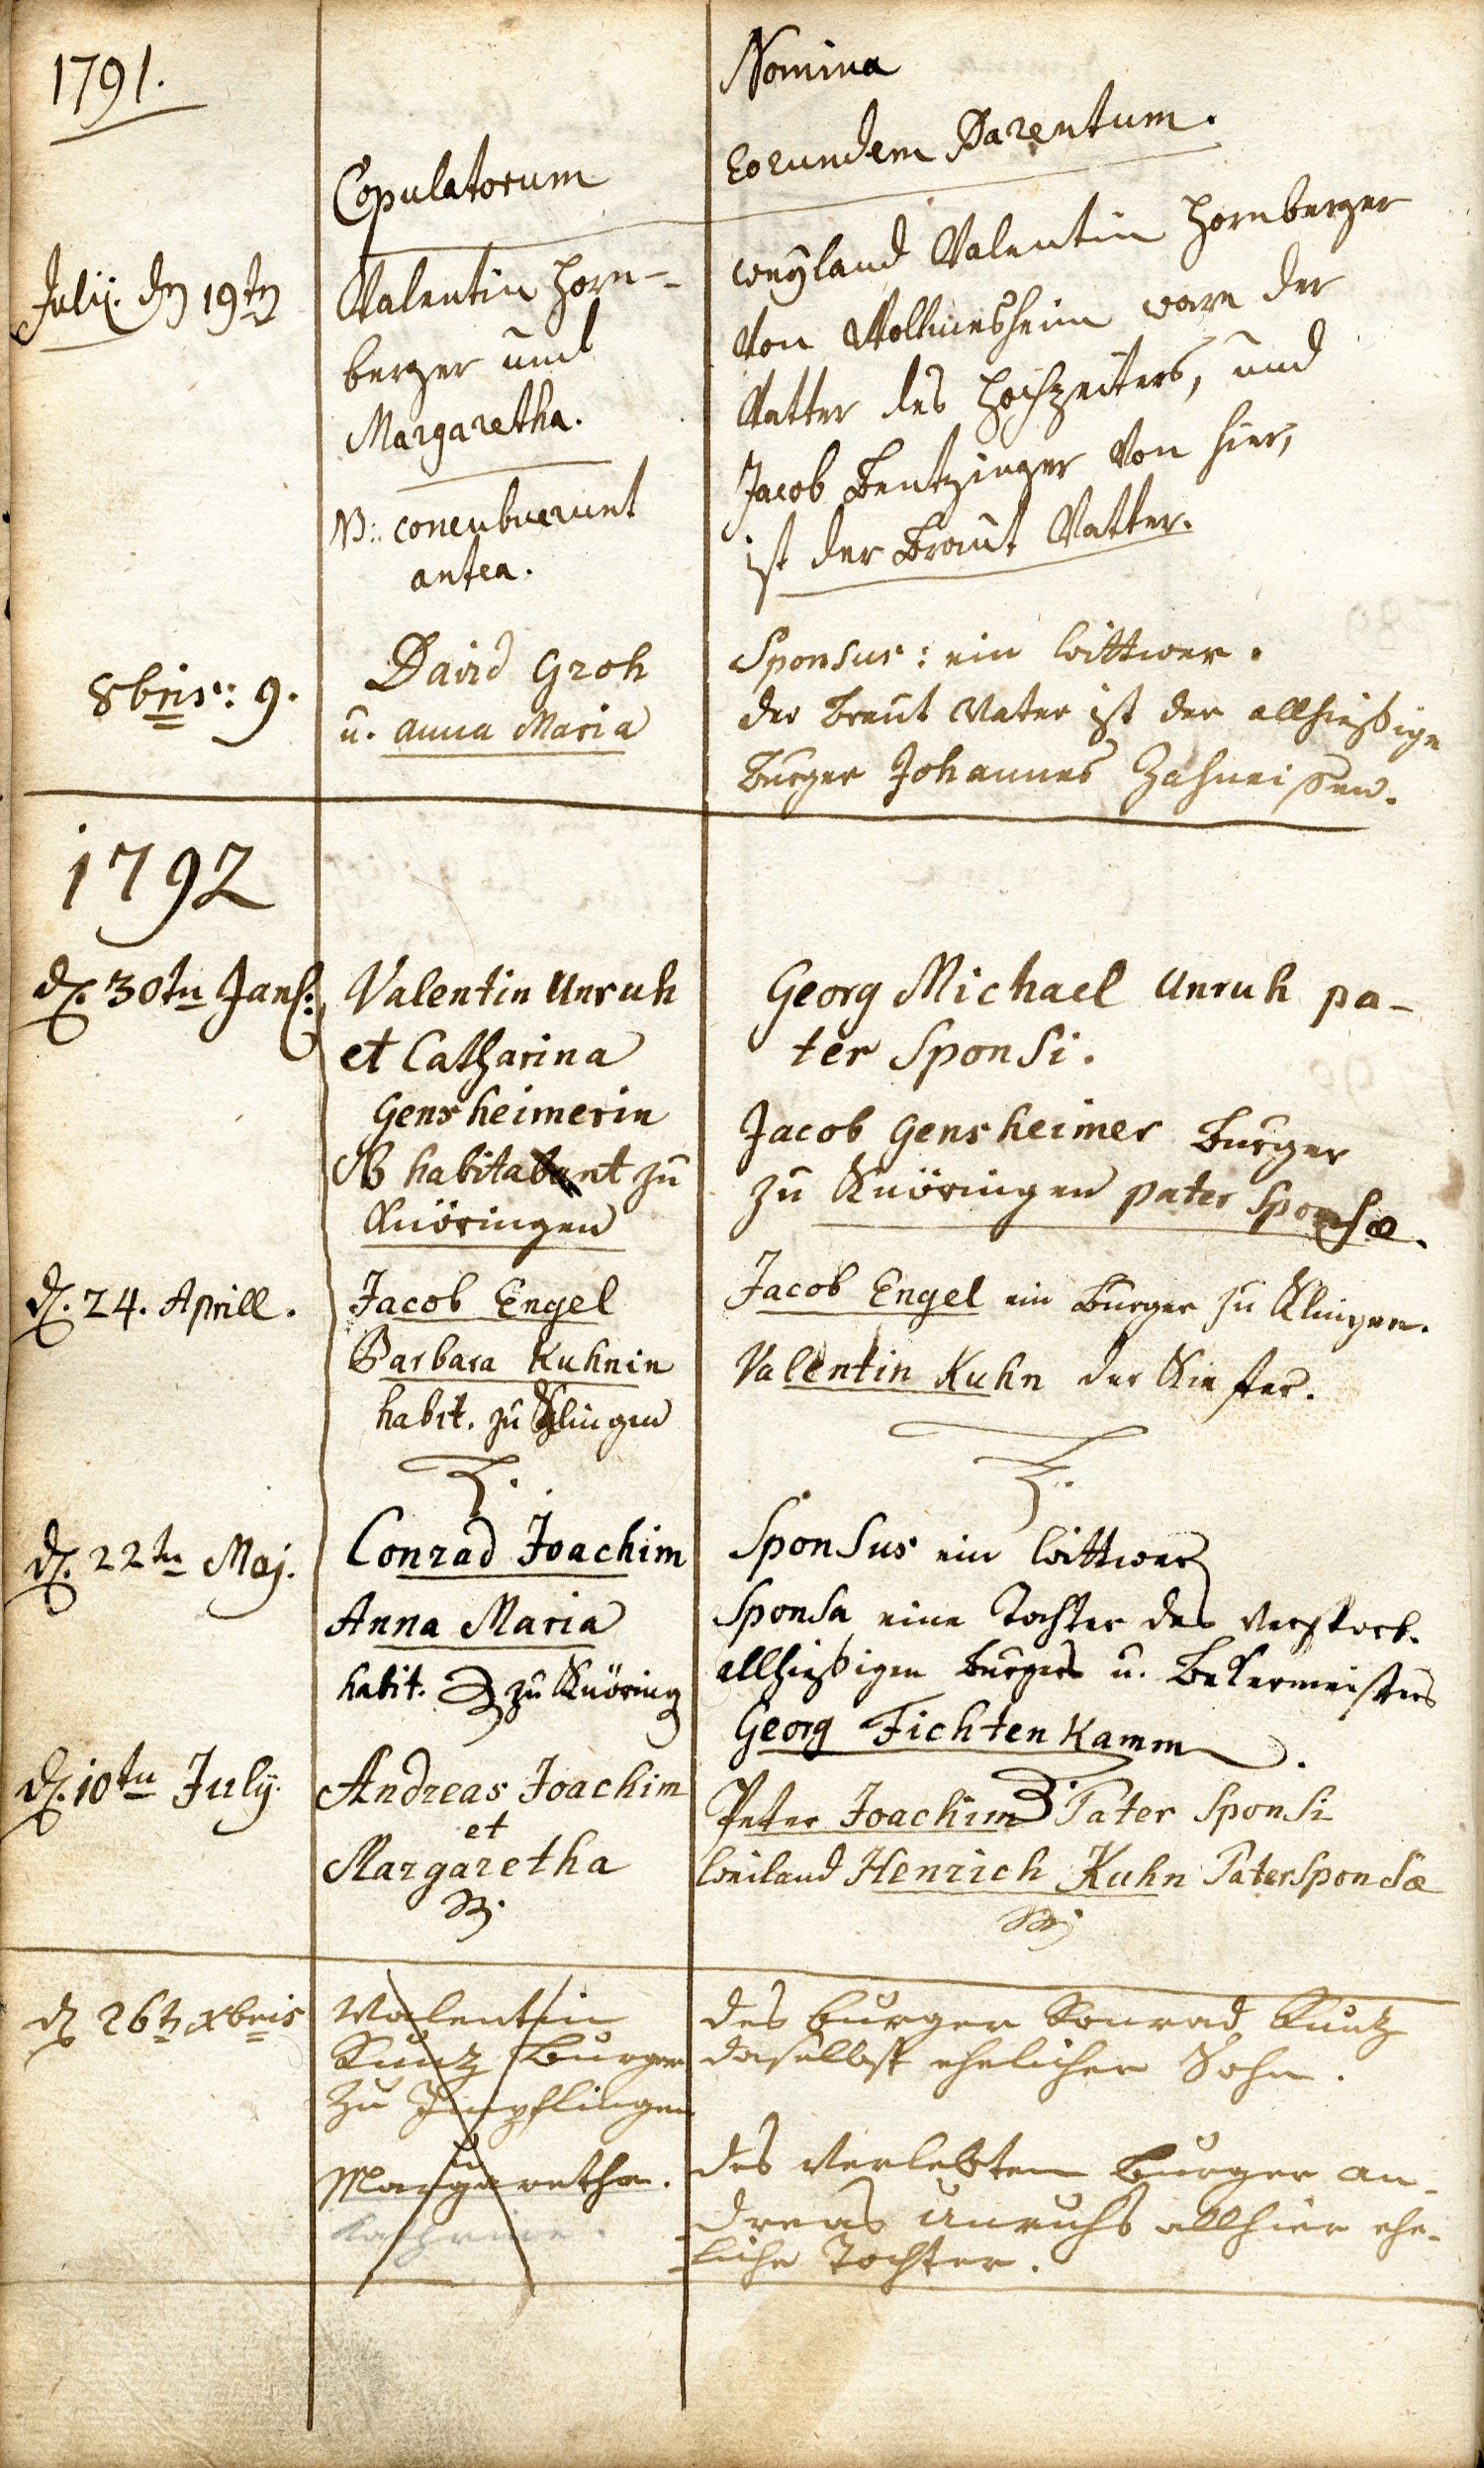 1791.
Nomina
Copulatorum
Eorundem Parentum.
Julij. dn 19tn
Valentin Horn-
berger und
Margaretha.
NB: concubuerunt
antea.
weyland Valentin Hornberger
von Wollmesheim ware der
Vatter des Hochzeiters, und
Jacob Bentzinger von hier,
ist der Braut Vatter.
8bris: 9.
David Groh
u. Anna Maria
Sponsus: ein Wittwer.
der Braut Vater ist der allhießige
Burger Johannes Zahneißen.
1792
d. 30tn Jan:
Valentin Unruh
et Catharina
Gensheimerin
NB habitant zu
Knöringen
Georg Michael Unruh pa-
ter Sponsi.
Jacob Gensheimer Burger
zu Knöringen pater Sponsæ.
d. 24. Aprill.
Jacob Engel
Barbara Kuhnin
habit. zu Klingen
Jacob Engel ein Burger zu Klingen.
Valentin Kuhn der Kiefter.
d. 22tn Maj.
Conrad Joachim
Anna Maria
habit. zu Knöring
Sponsus ein Wittwer
Sponsa eine Tochter des verstorb.
allhießigen Burgers u. Bekermeisters
Georg Fichtenkamm.
d. 10tn July.
Andreas Joachim
et
Margaretha
Peter Joachim Pater Sponsi
Weiland Henrich Kuhn Pater Sponsæ
d 26tn xbris
Valentin
Kuntz Burger
zu Impflingen
u
Margaretha.
Kathrine.
des burger Konrad Kuntz
daselbst ehelicher Sohn.
des verlebten burger an-
dreas Unruhs allhier ehe-
liche Tochter.